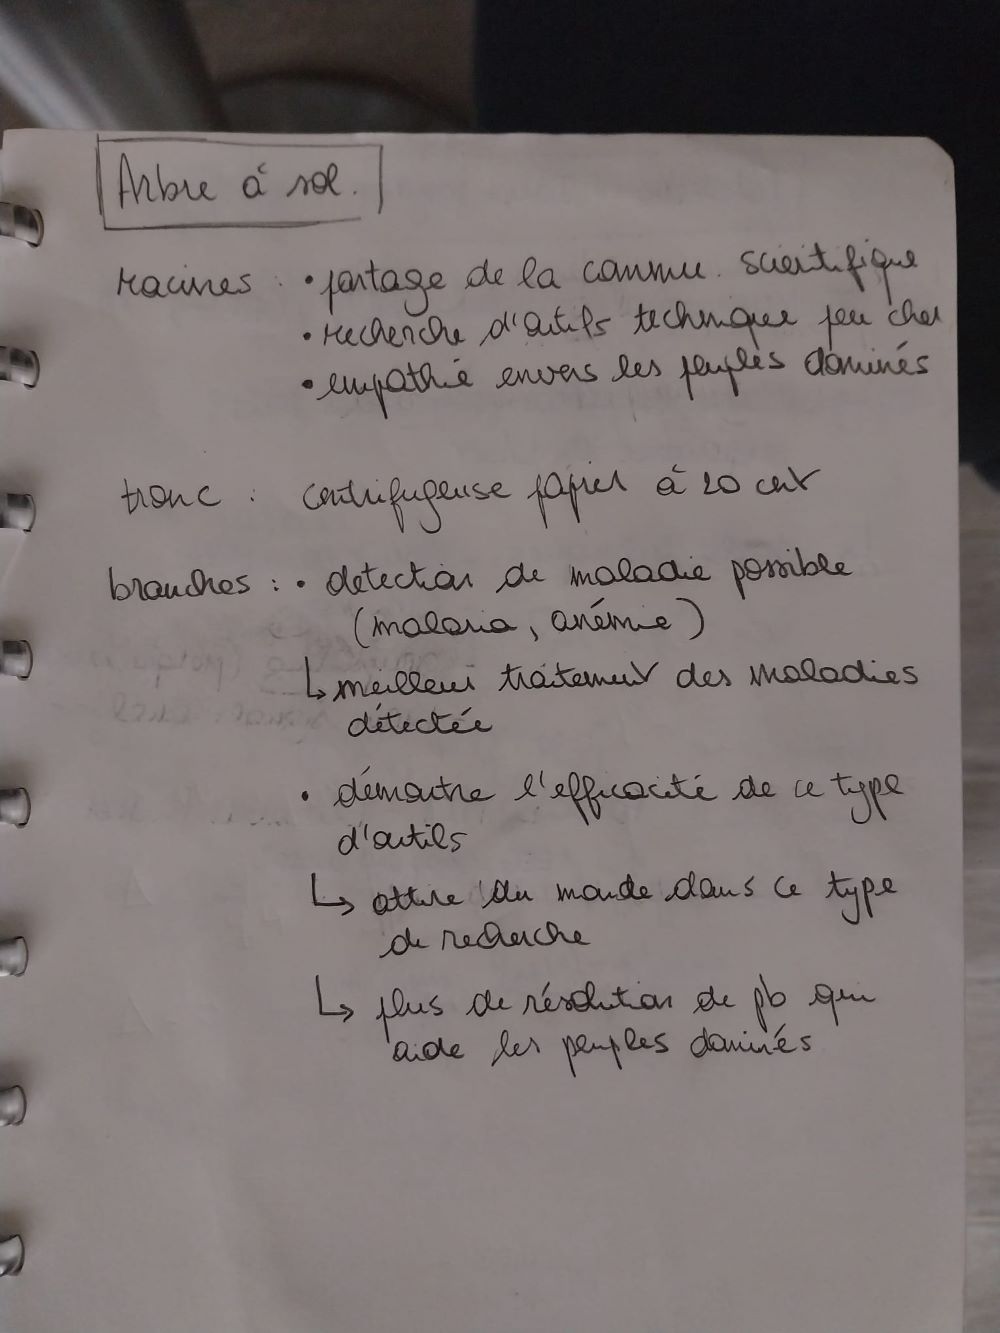 Arbre à sol.
racines : • partage de la commu. scientifique
• recherche d'outils technique peu cher
• empathie envers les peuples dominés
tronc : centrifugeuse papier à 20 cent
branches : • detection de maladie possible
(malaria, anémie)
↳ meilleur traitement des maladies
détectée
• démontre l'efficacité de ce type
d'outils
↳ attire du monde dans ce type
de recherche
↳ plus de résolution de pb qui
aide les peuples dominés